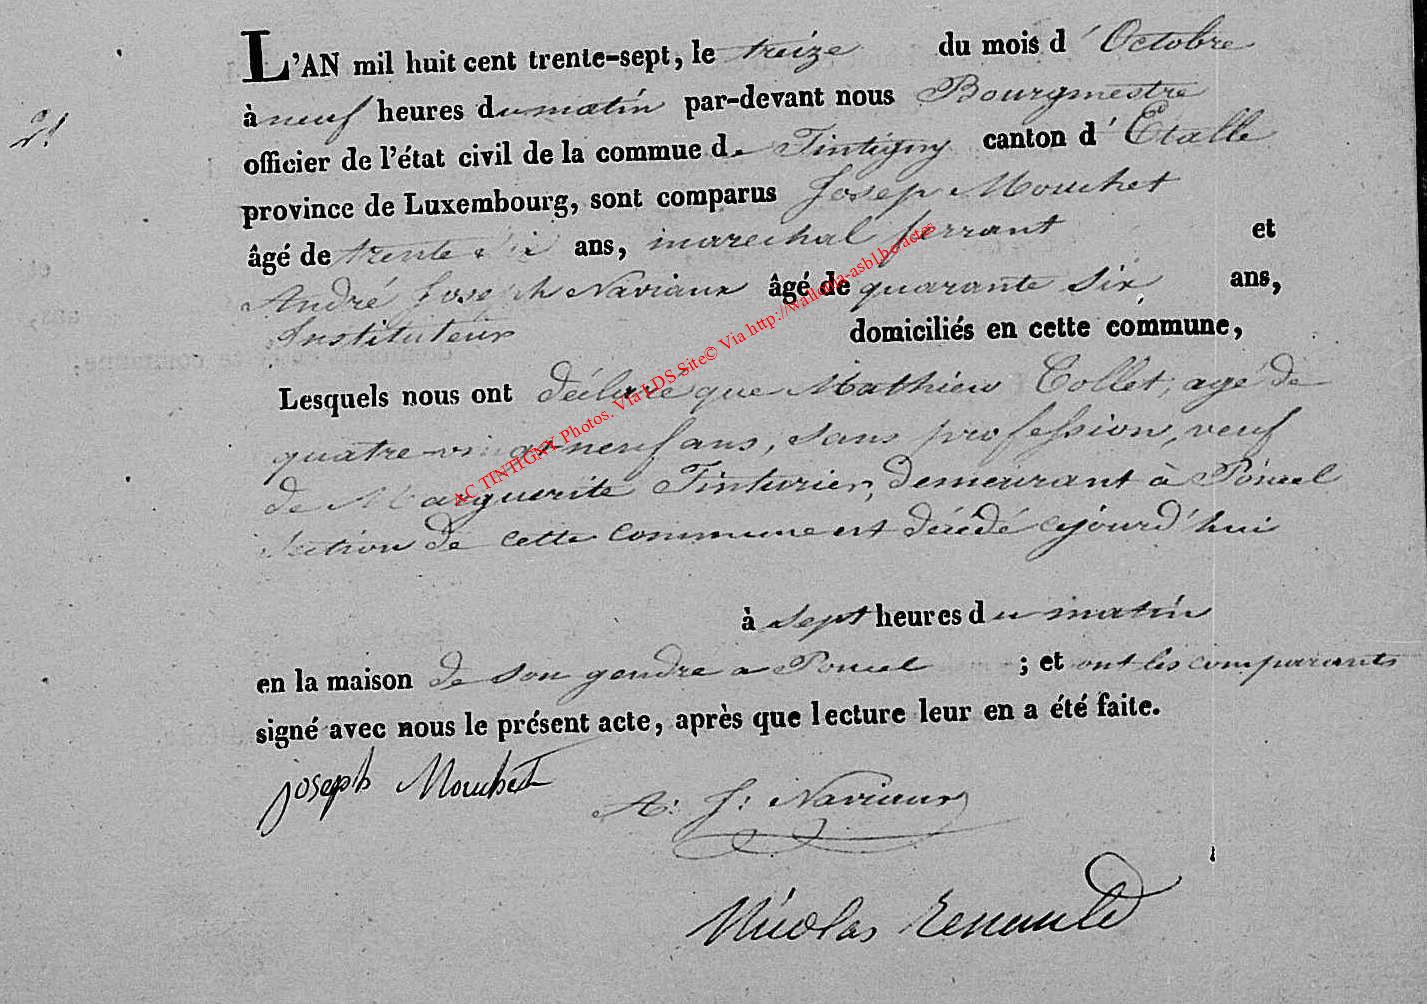 L'AN mil huit cent trente-sept, le treize du mois d'Octobre
21
à neuf heures du matin par-devant nous Bourgmestre
officier de l'état civil de la commue de Tintigny canton d'Etalle
province de Luxembourg, sont comparus Josep Mouchet
âgé de trente ans, marechal ferrant et
André Joseph Naviaux âgé de quarante six ans,
Instituteur domiciliés en cette commune,
Lesquels nous ont déclaré que Mathieu Collet, agé de
quatre-vingt-neuf ans, sans profession, veuf
de Marguerite Tinturier, demeurant à Poncel
Section de cette commune est décédé cejourd'hui
à sept heures du matin
en la maison de son gendre a Poncel ; et ont les comparants
signé avec nous le présent acte, après que lecture leur en a été faite.
joseph Mouchet
A: J: Naviaux
Nicolas Renauld
AC TINTIGNY Photos. Via LDS Site© Via http://wallonia-asbl.be/actes